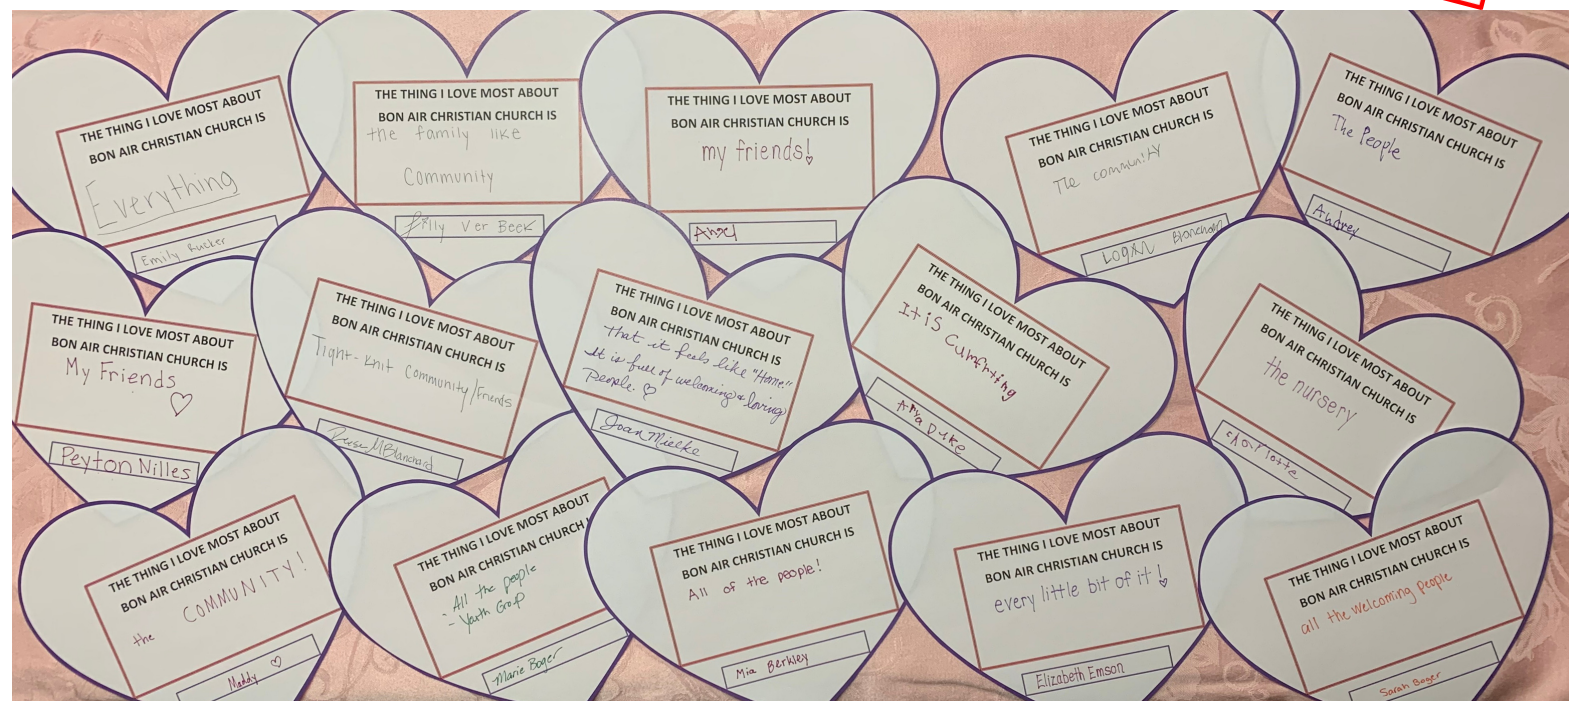 THE THING I LOVE MOST ABOUT
BON AIR CHRISTIAN CHURCH IS
Everything
Emily Rucker
THE THING I LOVE MOST ABOUT
BON AIR CHRISTIAN CHURCH IS
the family like
Community
Lily Ver Beek
THE THING I LOVE MOST ABOUT
BON AIR CHRISTIAN CHURCH IS
my friends!
Angel
THE THING I LOVE MOST ABOUT
BON AIR CHRISTIAN CHURCH IS
The community
Logan Blanchard
THE THING I LOVE MOST ABOUT
BON AIR CHRISTIAN CHURCH IS
The People
Audrey
THE THING I LOVE MOST ABOUT
BON AIR CHRISTIAN CHURCH IS
My Friends
Peyton Nilles
THE THING I LOVE MOST ABOUT
BON AIR CHRISTIAN CHURCH IS
Tight-knit Community/friends
Blanchard
THE THING I LOVE MOST ABOUT
BON AIR CHRISTIAN CHURCH IS
that it feels like "Home."
It is full of welcoming & loving
People. ♡
Joan Mielke
THE THING I LOVE MOST ABOUT
BON AIR CHRISTIAN CHURCH IS
It is Cumfrting
Duke
THE THING I LOVE MOST ABOUT
BON AIR CHRISTIAN CHURCH IS
the nursery
charlotte
THE THING I LOVE MOST ABOUT
BON AIR CHRISTIAN CHURCH IS
the COMMUNITY!
Maddy ♡
THE THING I LOVE MOST ABOUT
BON AIR CHRISTIAN CHURCH
- All the people
- Youth Group
Marie Boger
THE THING I LOVE MOST ABOUT
BON AIR CHRISTIAN CHURCH IS
All of the people!
Mia Berkley
THE THING I LOVE MOST ABOUT
BON AIR CHRISTIAN CHURCH IS
every little bit of it!
Elizabeth Emson
THE THING I LOVE MOST ABOUT
BON AIR CHRISTIAN CHURCH IS
all the welcoming people
Sarah Boger